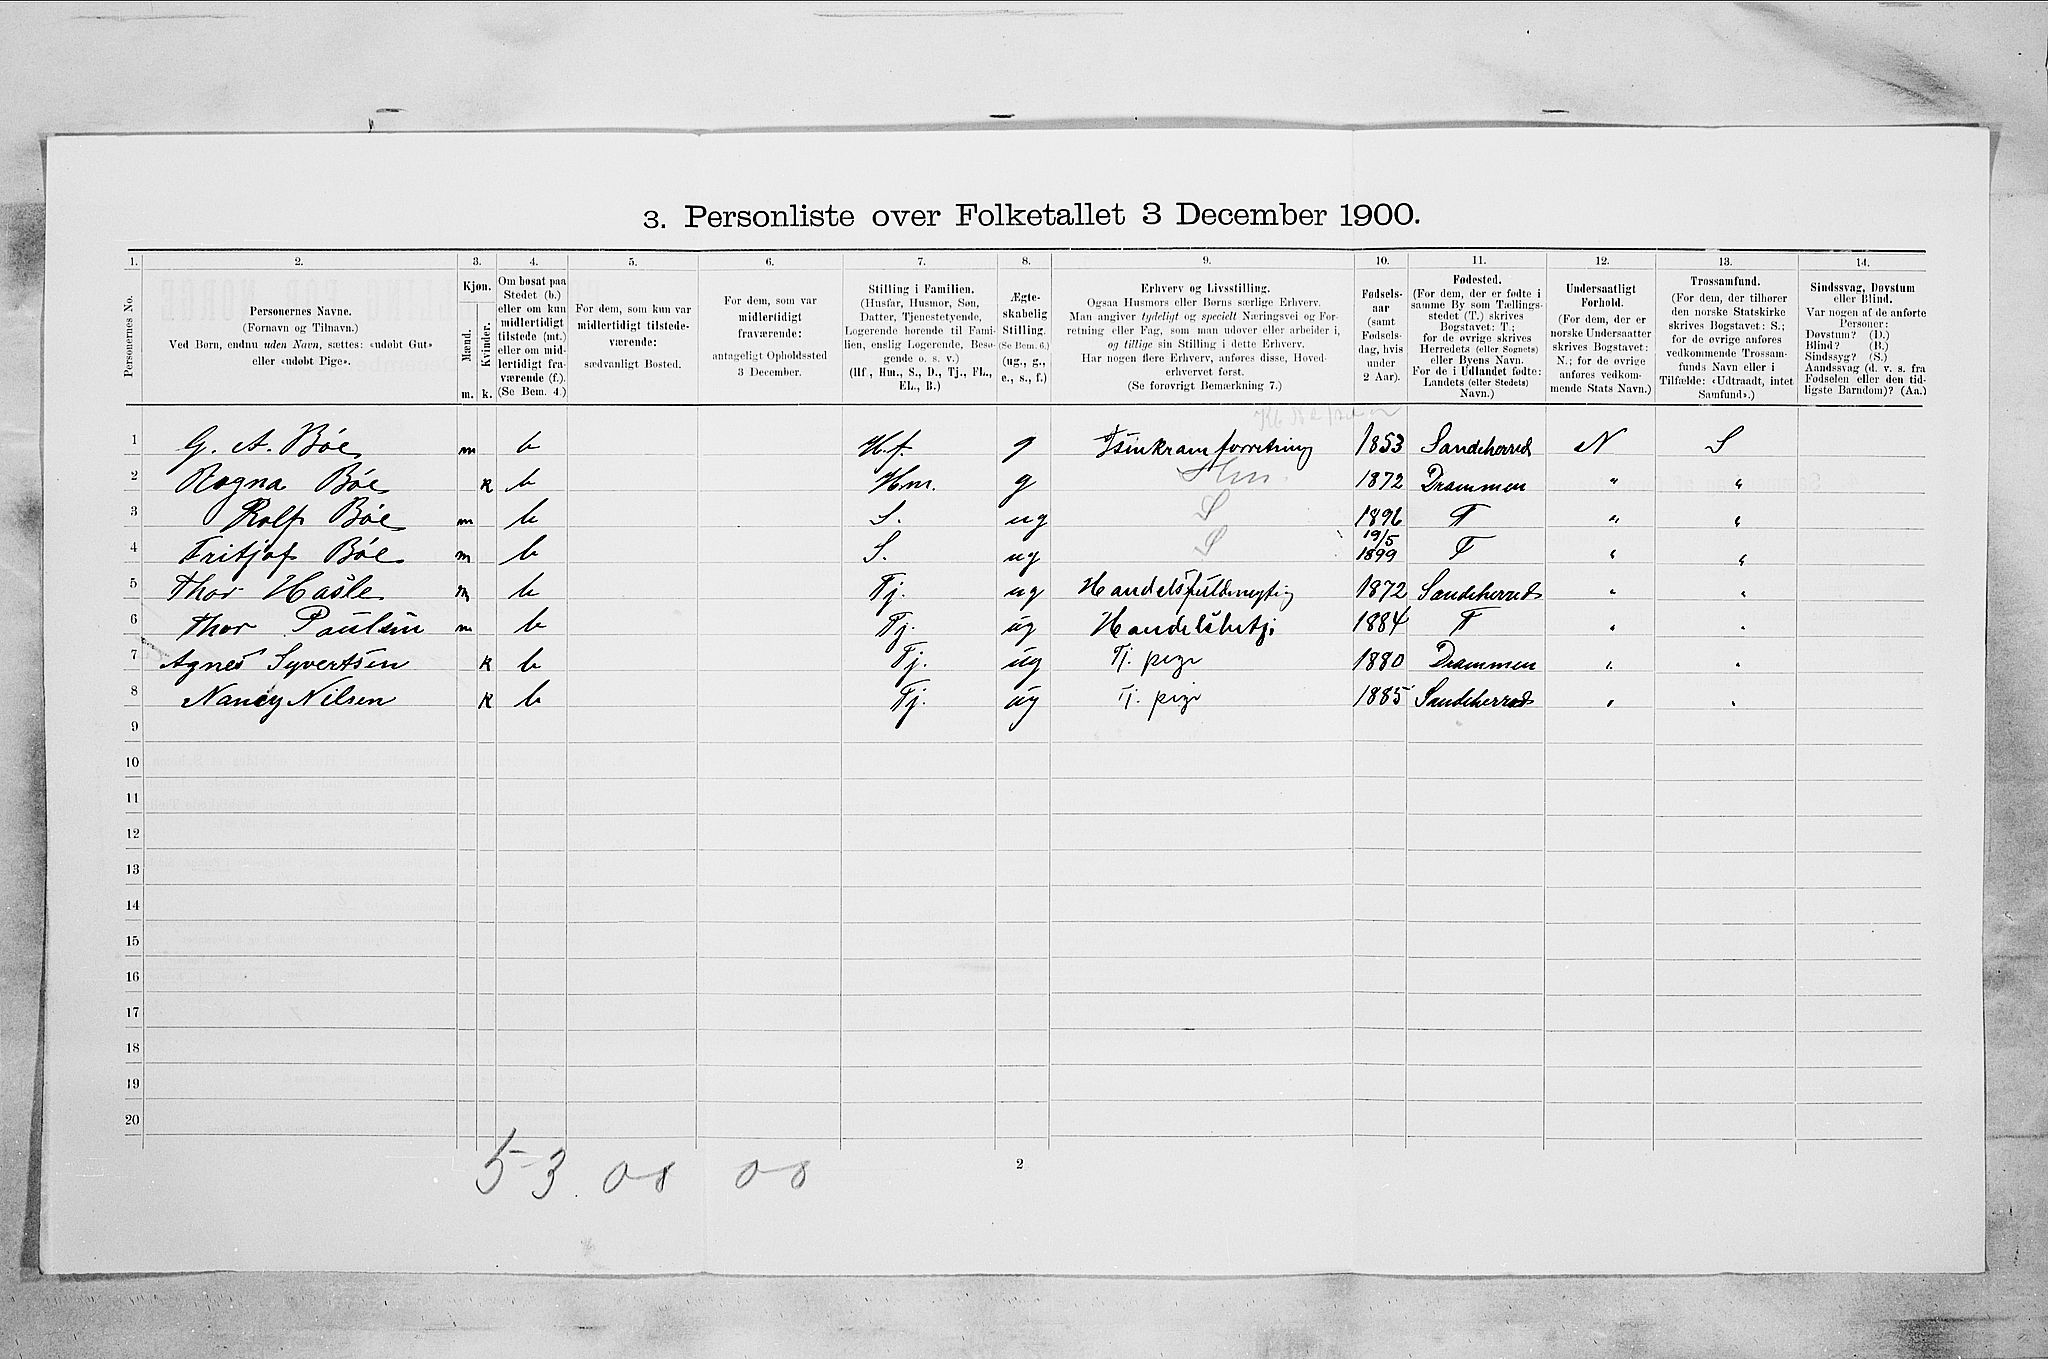 3. Personliste over Folketallet 3 December 1900.
1. 2. 3. 4. 5. 6. 7. 8. 9. 10. 11. 12. 13. 14.
Personernes No.
Personernes Navne.
(Fornavn og Tilnavn.)
Ved Børn, endnu uden Navn, sættes: «udøbt Gut»
eller «udøbt Pige».
Kjøn.
Mænd.
Kvinder.
m. k.
Om bosat paa
Stedet (b.)
eller om kun
midlertidigt
tilstede (mt.)
eller om mid-
lertidigt fra-
værende (f.).
(Se Bem. 4.)
For dem, som kun var
midlertidigt tilstede-
værende:
sædvanligt Bosted.
For dem, som var
midlertidigt
fraværende:
antageligt Opholdssted
3 December.
Stilling i Familien.
(Husfar, Husmor, Søn,
Datter, Tjenestetyende,
Logerende hørende til Fami-
lien, enslig Logerende, Besø-
gende o. s. v.)
(Hf., Hm., S., D., Tj., FL.,
EL., B.)
Ægte-
skabelig
Stilling.
(Se Bem. 6.)
(ug., g.,
e., s., f.)
Erhverv og Livsstilling.
Ogsaa Husmors eller Børns særlige Erhverv.
Man angiver tydeligt og specielt Næringsvei og For-
retning eller Fag, som man udøver eller arbeider i,
og tillige sin Stilling i dette Erhverv.
Har nogen flere Erhverv, anføres disse, Hoved-
erhvervet først.
(Se forøvrigt Bemærkning 7.)
Fødsels-
aar
(samt
Fødsels-
dag, hvis
under
2 Aar).
Fødested.
(For dem, der er fødte i
samme By som Tællings-
stedet (T.) skrives
Bogstavet: T.;
for de øvrige skrives
Herredets (eller Sognets)
eller Byens Navn.
For de i Udlandet fødte:
Landets (eller Stedets)
Navn.)
Undersaatligt
Forhold.
(For dem, der er
norske Undersaatter
skrives Bogstavet:
N.; for de øvrige
anføres vedkom-
mende Stats Navn.)
Trossamfund.
(For dem, der tilhører
den norske Statskirke
skrives Bogstavet: S.;
for de øvrige anføres
vedkommende Trossam-
funds Navn eller i
Tilfælde: «Udtraadt, intet
Samfund».)
Sindssvag, Døvstum
eller Blind.
Var nogen af de anførte
Personer:
Døvstum? (D.)
Blind? (B.)
Sindssyg? (S.)
Aandssvag (d. v. s. fra
Fødselen eller den tid-
ligste Barndom)? (Aa.)
1 G. A. Bøe m b H.f. g Isenkramforretning 1853 Sandeherred N S
2 Ragna Bøe k b Hm. g Hm. 1872 Drammen " "
3 Rolf Bøe m b S. ug S 1896 T " "
4 Fritjof Bøe m b S. ug S 19/5 1899 T " "
5 Thor Hasle m b Tj. ug Handelsfuldmegtig 1872 Sandeherred " "
6 Thor Paulsen m b Tj. ug Handelsbetj. 1884 T " "
7 Agnes Syvertsen k b Tj. ug Tj. pige 1880 Drammen " "
8 Nancy Nilsen k b Tj. ug Tj. pige 1885 Sandeherred " "
9
10
11
12
13
14
15
16
17
18
19
20
53.08 08
2